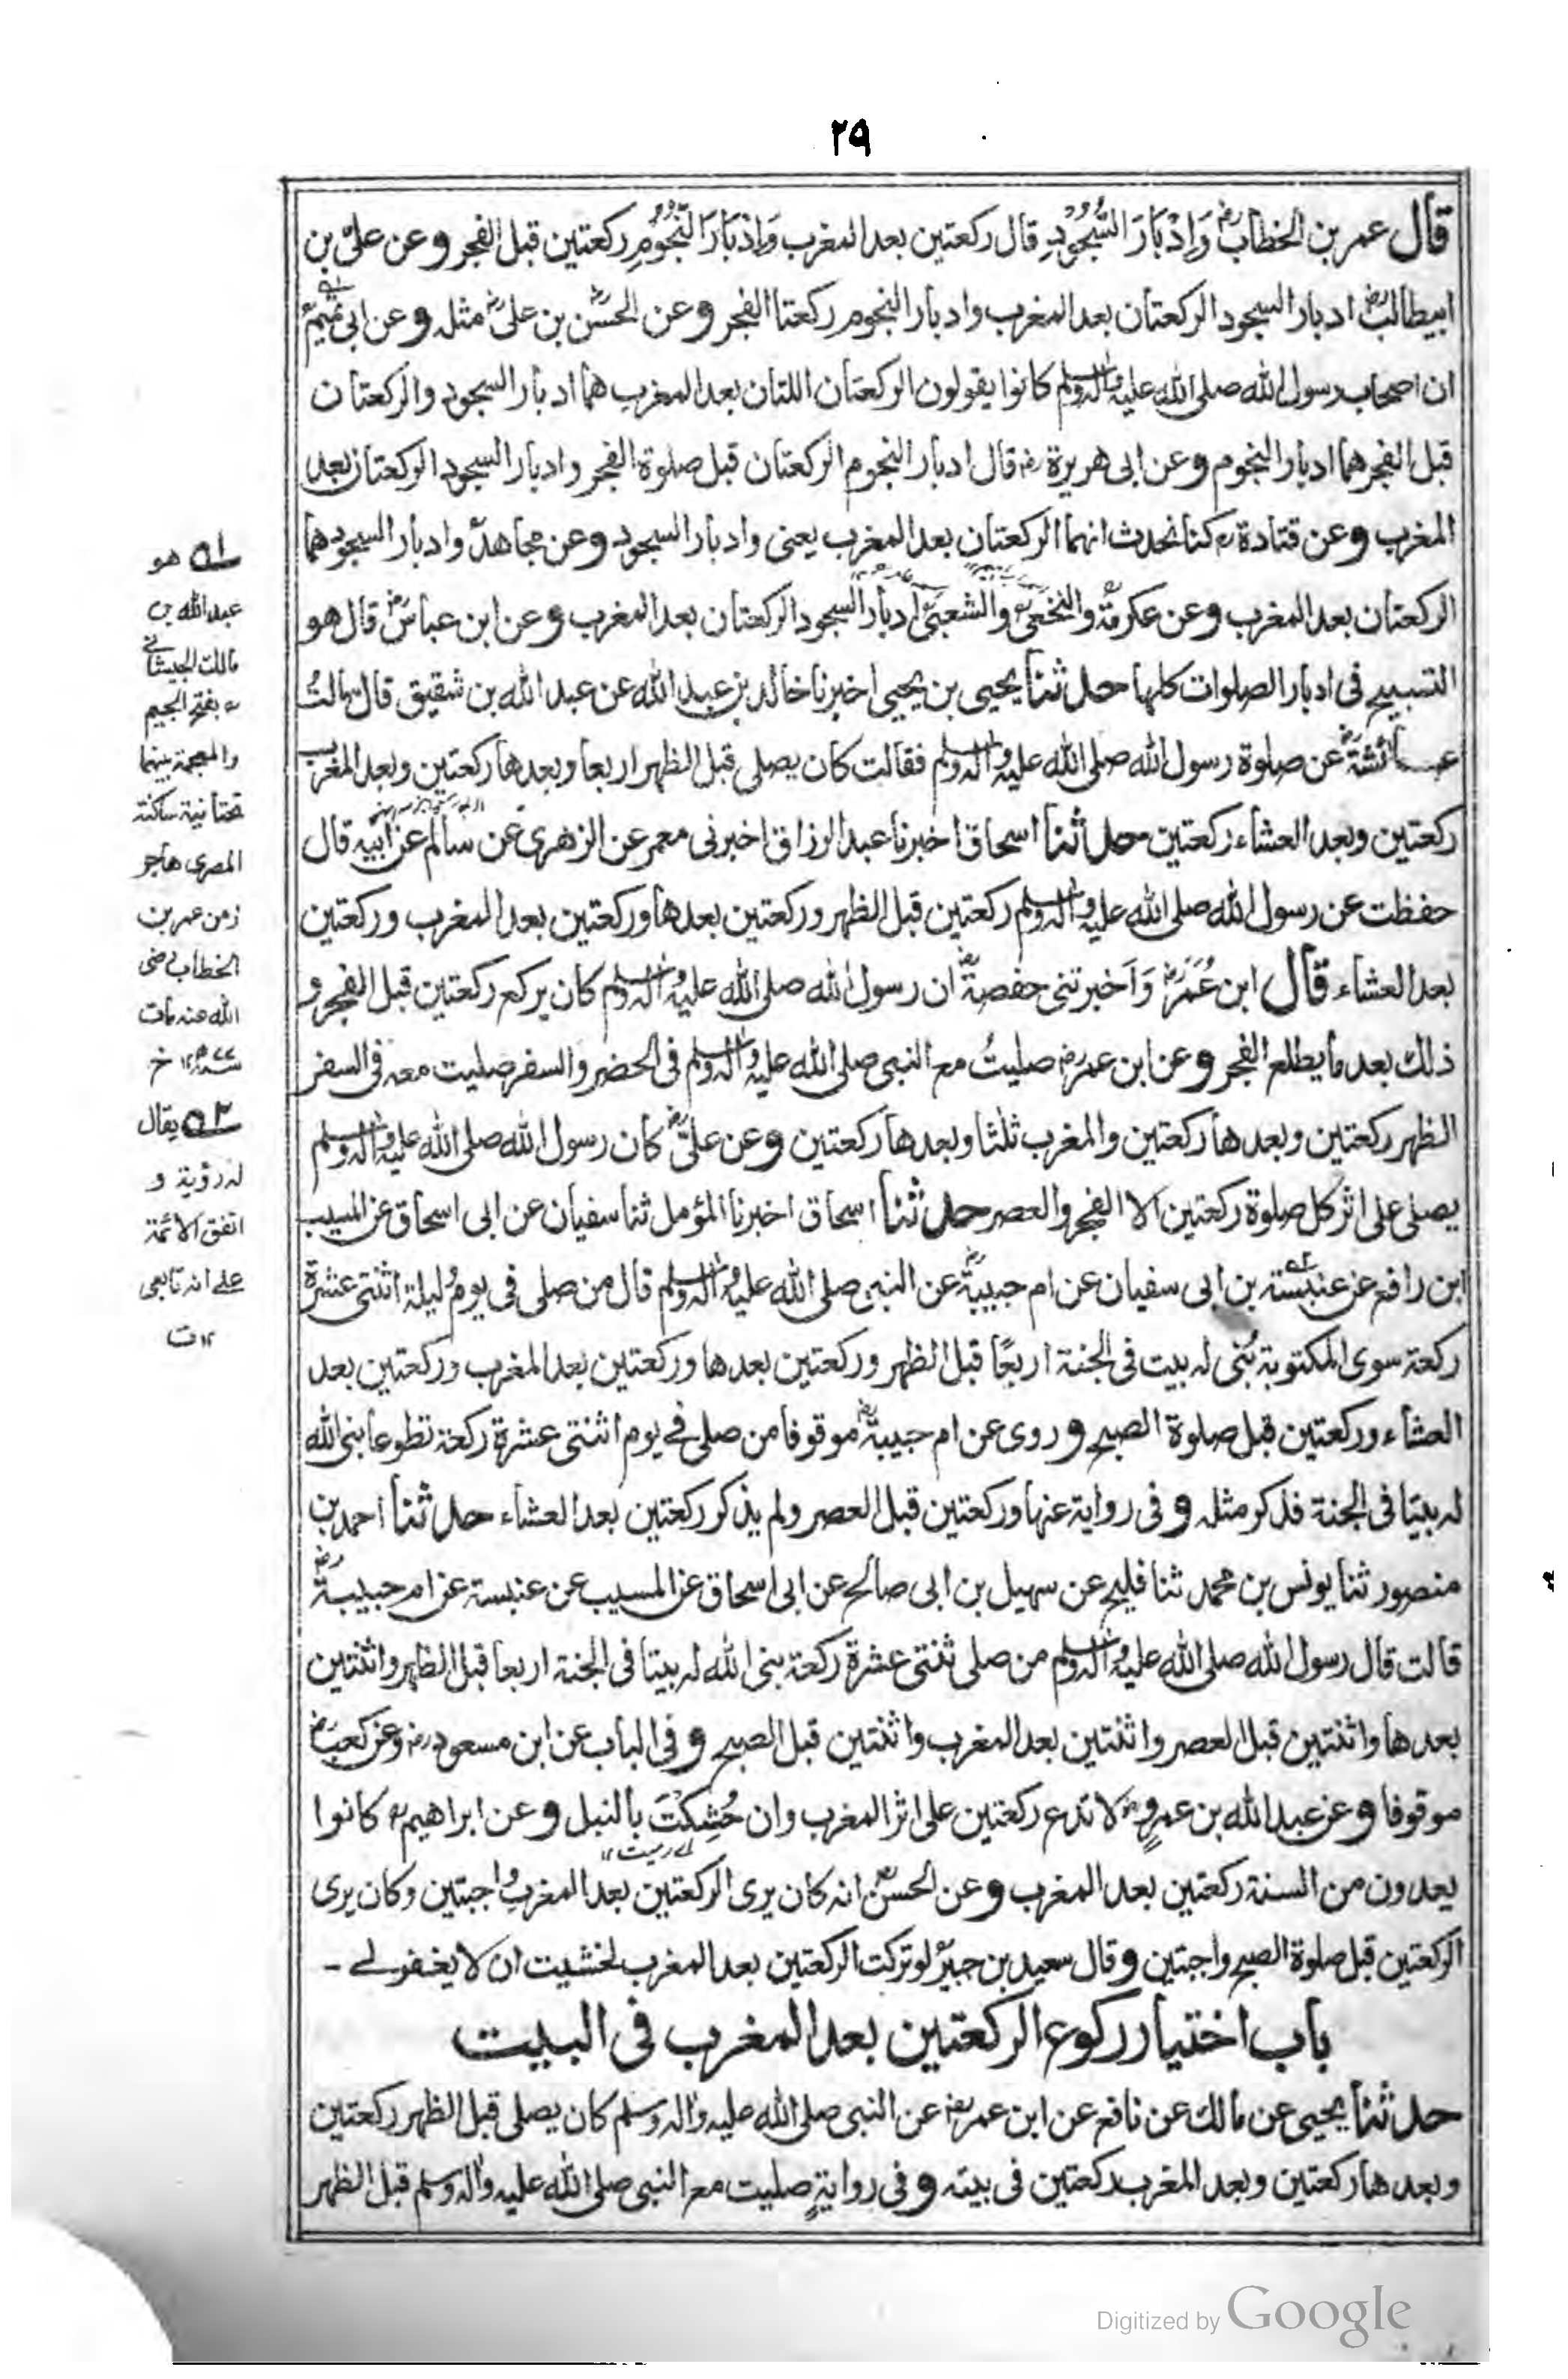 ٢٩
قال عمر بن الخطابؓ وَاِدْبَارَ السُّجُوْدِ قال ركعتين بعد المغرب وَاِدْبَارَ النُّجُوْمِ ركعتين قبل الفجر وعن علىّ بن
ابيطالبؓ ادبار السجود الركعتان بعد المغرب وادبار النجوم ركعتا الفجر وعن الحسنؓ بن علىؓ مثله وعن ابى تميمؒ
ان اصحاب رسول الله صلى الله عليه واله وسلم كانوا يقولون الركعتان اللتان بعد المغرب هما ادبار السجود والركعتان
قبل الفجر هما ادبار النجوم وعن ابى هريرةؓ قال ادبار النجوم الركعتان قبل صلوة الفجر وادبار السجود الركعتان بعد
المغرب وعن قتادةؒ كنا نحدث انهما الركعتان بعد المغرب يعنى وادبار السجود وعن مجاهدؒ وادبار السجود هما
الركعتان بعد المغرب وعن عكرمةؒ والنخعىؒ والشعبىؒ ادبار السجود الركعتان بعد المغرب وعن ابن عباسؓ قال هو
التسبيح فى ادبار الصلوات كلها حدثنا يحيى بن يحيى اخبرنا خالد بن عبد الله عن عبد الله بن شقيق قال سالتُ
عائشةؓ عن صلوة رسول الله صلى الله عليه واله وسلم فقالت كان يصلى قبل الظهر اربعا وبعدها ركعتين وبعد المغرب
ركعتين وبعد العشاء ركعتين حدثنا اسحاق اخبرنا عبد الرزاق اخبرنى معمر عن الزهرى عن سالم عن ابيه قال
حفظت عن رسول الله صلى الله عليه واله وسلم ركعتين قبل الظهر وركعتين بعدها وركعتين بعد المغرب وركعتين
بعد العشاء قال ابن عُمَرَؓ وَاَخبرتنى حفصةؓ ان رسول الله صلى الله عليه واله وسلم كان يركع ركعتين قبل الفجر و
ذلك بعد ما يطلع الفجر وعن ابن عمرؓ صليتُ مع النبى صلى الله عليه واله وسلم فى الحضر والسفر صليت معه فى السفر
الظهر ركعتين وبعدها ركعتين والمغرب ثلثا وبعدها ركعتين وعن علىؓ كان رسول الله صلى الله عليه واله وسلم
يصلى على اثر كل صلوة ركعتين الا الفجر والعصر حدثنا اسحاق اخبرنا المؤمل ثنا سفيان عن ابى اسحاق عن المسيب
ابن رافع عن عنبسة بن ابى سفيان عن ام حبيبةؓ عن النبى صلى الله عليه واله وسلم قال من صلى فى يوم وليلة اثنتى عشرة
ركعة سوى المكتوبة بُنى له بيت فى الجنة اربعًا قبل الظهر وركعتين بعدها وركعتين بعد المغرب وركعتين بعد
العشاء وركعتين قبل صلوة الصبح وروى عن ام حبيبةؓ موقوفا من صلى فے يوم اثنتى عشرة ركعة تطوعا بنى الله
له بيتا فى الجنة فذكر مثله وفى رواية عنها وركعتين قبل العصر ولم يذكر ركعتين بعد العشاء حدثنا احمد بن
منصور ثنا يونس بن محمد ثنا فليح عن سهيل بن ابى صالح عن ابى اسحاق عن المسيب عن عنبسة عن ام حبيبةؓ
قالت قال رسول الله صلى الله عليه واله وسلم من صلى ثنتى عشرة ركعة بنى الله له بيتا فى الجنة اربعا قبل الظهر واثنتين
بعدها واثنتين قبل العصر واثنتين بعد المغرب واثنتين قبل الصبح وفى الباب عن ابن مسعودؓ وعن كعبؓ
موقوفا وعن عبد الله بن عمروؓ لا تدع ركعتين على اثر المغرب وان حُشِكْتَ بالنبل وعن ابراهيمؒ كانوا
اے رميت ١٢
يعدون من السنة ركعتين بعد المغرب وعن الحسنؒ انه كان يرى الركعتين بعد المغرب واجبتين وكان يرى
الركعتين قبل صلوة الصبح واجبتين وقال سعيد بن جبيرؒ لو تركت الركعتين بعد المغرب لخشيت ان لا يغفر لے -
باب اختيار ركوع الركعتين بعد المغرب فى البيت
حدثنا يحيى عن مالك عن نافع عن ابن عمرؓ عن النبى صلى الله عليه واله وسلم كان يصلى قبل الظهر ركعتين
وبعدها ركعتين وبعد المغرب ركعتين فى بيته وفى روايةٍ صليت مع النبى صلى الله عليه واله وسلم قبل الظهر
١ــه هو
عبد الله بن
مالك الجيشانے
بفتح الجيم
والمعجمة بينهما
تحتانية ساكنة
المصرى هاجر
زمن عمر بن
الخطاب رضى
الله عنه مات
سنة ٧٧ ١٢ خ
٢ــه يقال
له رؤية و
اتفق الائمة
علے انه تابعى
١٢ ت
Digitized by Google